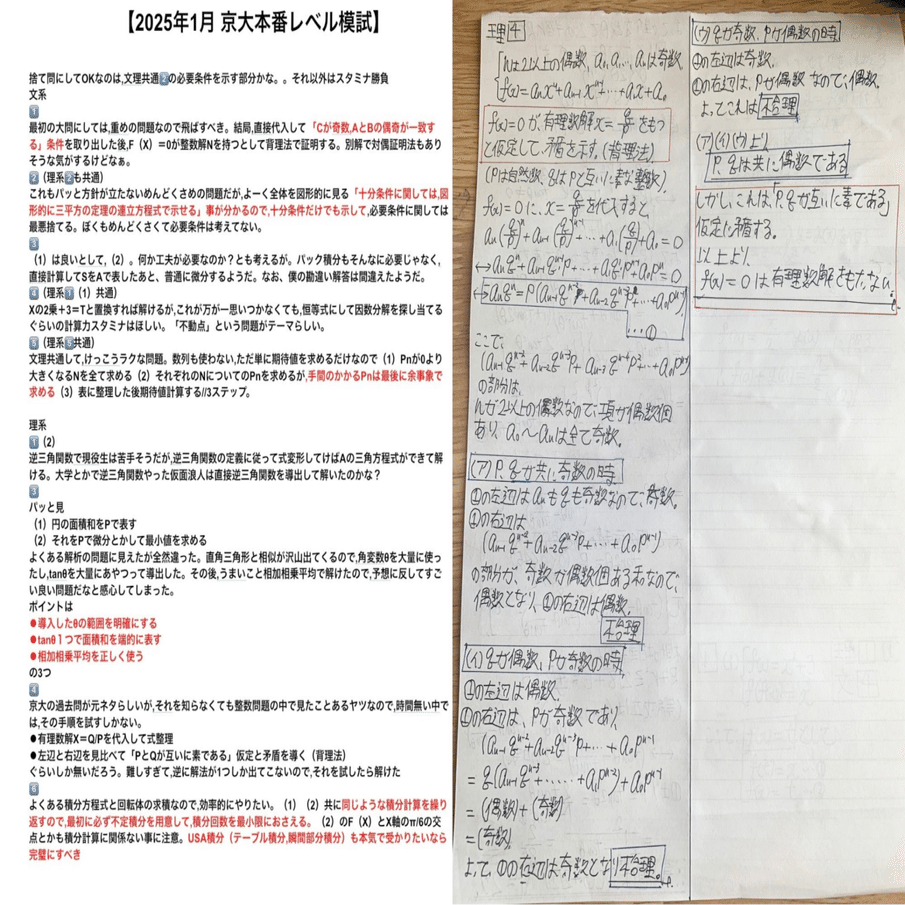 【2025年1月 京大本番レベル模試】
捨て問にしてOKなのは,文理共通2の必要条件を示す部分かな。。それ以外はスタミナ勝負
文系
1
最初の大問にしては,重めの問題なので飛ばすべき。結局,直接代入して「Cが奇数,AとBの偶奇が一致す
る」条件を取り出した後,F（X）=0が整数解Nを持つとして背理法で証明する。別解で対偶証明法もあり
そうな気がするけどなぁ。
2（理系2も共通）
これもパッと方針が立たないめんどくさめの問題だが,よーく全体を図形的に見る「十分条件に関しては,図
形的に三平方の定理の連立方程式で示せる」事が分かるので,十分条件だけでも示して,必要条件に関しては
最悪捨てる。ぼくもめんどくさくて必要条件は考えてない。
3
（1）は良いとして,（2）。何か工夫が必要なのか？とも考えるが。バック積分もそんなに必要じゃなく,
直接計算してSをAで表したあと、普通に微分するようだ。なお、僕の勘違い解答は間違えたようだ。
4（理系1（1）共通）
Xの2乗+3=Tと置換すれば解けるが,これが万が一思いつかなくても,恒等式にして因数分解を探し当てる
ぐらいの計算力スタミナはほしい。「不動点」という問題がテーマらしい。
5（理系5共通）
文理共通して,けっこうラクな問題。数列も使わない,ただ単に期待値を求めるだけなので（1）Pnが0より
大きくなるNを全て求める（2）それぞれのNについてのPnを求めるが,手間のかかるPnは最後に余事象で
求める（3）表に整理した後期待値計算する//3ステップ。
理系
1（2）
逆三角関数で現役生は苦手そうだが,逆三角関数の定義に従って式変形してけばAの三角方程式ができて解
ける。大学とかで逆三角関数やった仮面浪人は直接逆三角関数を導出して解いたのかな？
3
パッと見
（1）円の面積和をPで表す
（2）それをPで微分とかして最小値を求める
よくある解析の問題に見えたが全然違った。直角三角形と相似が沢山出てくるので,角変数θを大量に使っ
たし,tanθを大量にあやつって導出した。その後,うまいこと相加相乗平均で解けたので,予想に反してすご
い良い問題だなと感心してしまった。
ポイントは
●導入したθの範囲を明確にする
●tanθ１つで面積和を端的に表す
●相加相乗平均を正しく使う
の3つ
4
京大の過去問が元ネタらしいが,それを知らなくても整数問題の中で見たことあるヤツなので,時間無い中で
は,その手順を試すしかない。
●有理数解X=Q/Pを代入して式整理
●左辺と右辺を見比べて「PとQが互いに素である」仮定と矛盾を導く（背理法）
ぐらいしか無いだろう。難しすぎて,逆に解法が1つしか出てこないので,それを試したら解けた
6
よくある積分方程式と回転体の求積なので,効率的にやりたい。（1）（2）共に同じような積分計算を繰り
返すので,最初に必ず不定積分を用意して,積分回数を最小限におさえる。（2）のF（X）とX軸のπ/6の交
点とかも積分計算に関係ない事に注意。USA積分（テーブル積分,瞬間部分積分）も本気で受かりたいなら
完璧にすべき
理4
nは2以上の偶数, a₀, a₁,…, aₙは奇数
f(x)=aₙxⁿ+aₙ₋₁xⁿ⁻¹+…+a₁x+a₀
f(x)=0が,有理数解x=q/pをもつ
と仮定して,矛盾を示す。(背理法)
(pは自然数,qはpと互いに素な整数)
f(x)=0に,x=q/pを代入すると,
aₙ(q/p)ⁿ+aₙ₋₁(q/p)ⁿ⁻¹+…+a₁(q/p)+a₀=0
↔aₙqⁿ+aₙ₋₁qⁿ⁻¹p+…+a₁qpⁿ⁻¹+a₀pⁿ=0
…①
ここで,
の部分は,
nが2以上の偶数なので,項が偶数個
あり, a₀〜aₙは全て奇数。
(ア)P,qが共に奇数の時
①の左辺はaₙもqも奇数なので,奇数。
①の右辺は
(aₙ₋₁qⁿ⁻¹+aₙ₋₂qⁿ⁻²p+…+a₀pⁿ⁻¹)
の部分が,奇数が偶数個ある和なので,
偶数となり,①の右辺は偶数。
不合理
(イ)qが偶数,Pが奇数の時
①の左辺は偶数
①の右辺は、Pが奇数であり
(aₙ₋₁qⁿ⁻¹+aₙ₋₂qⁿ⁻²p+…+a₀pⁿ⁻¹
=q(aₙ₋₁qⁿ⁻²+……+a₁pⁿ⁻²)+a₀pⁿ⁻¹
=(偶数)+(奇数)
=(奇数)
よって,①の右辺は奇数となり不合理。
(ウ)qが奇数,Pが偶数の時
①の左辺は奇数
①の右辺は,Pが偶数なので,偶数。
よってこれは不合理
(ア)(イ)(ウ)より
P,qは共に偶数である
しかし,これは「P,qが互いに素である」
仮定に矛盾する。
以上より,
f(x)=0は有理数解をもたない。